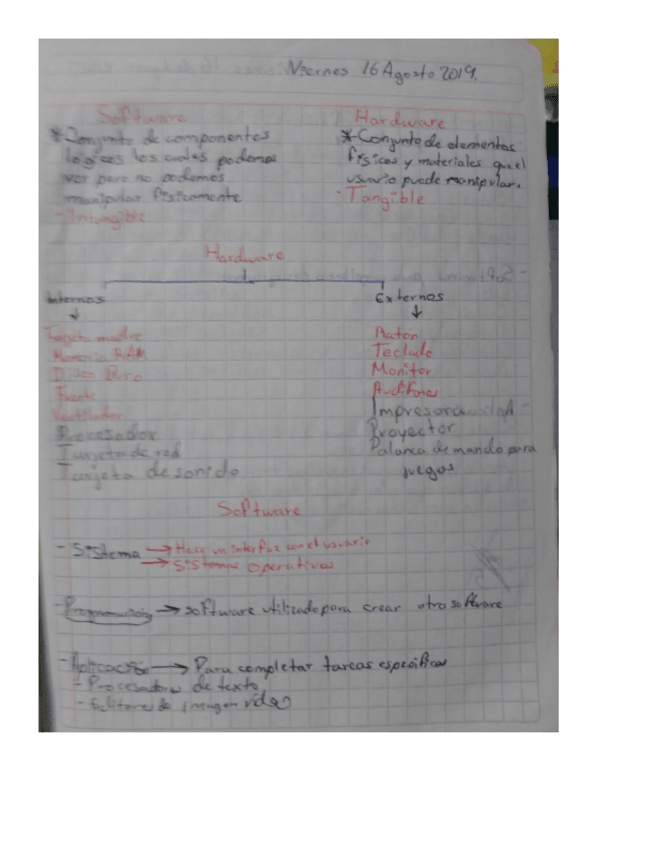 Viernes 16 Agosto 2019.
Software
* Conjunto de componentes
lógicos los cuales podemos
ver pero no podemos
manipular físicamente
- Intangible
Hardware
* Conjunto de elementos
físicos y materiales que el
usuario puede manipular.
- Tangible
Hardware
Internos
Tarjeta madre
Memoria RAM
Disco Duro
Fuente
Ventilador
Procesador
Tarjeta de red
Tarjeta de sonido
Externos
Ratón
Teclado
Monitor
Audífonos
Impresora
Proyector
Palanca de mando para
juegos
Software
- Sistema → Hace un interfaz con el usuario
→ Sistemas operativos
- Programación → software utilizado para crear otro software
- Aplicación → Para completar tareas específicas
- Procesadores de texto
- Editores de imagen video